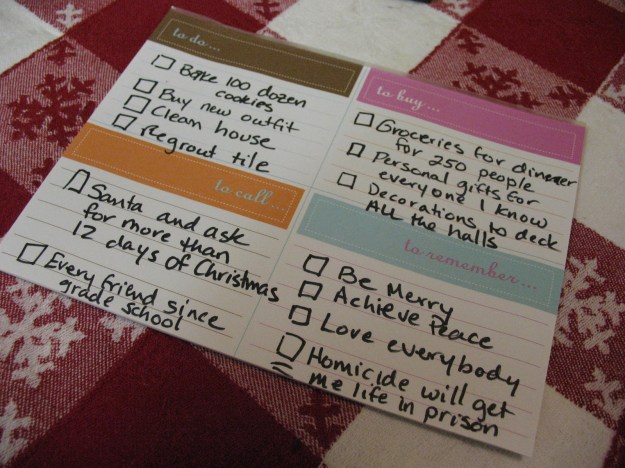 to do...
Bake 100 dozen
cookies
Buy new outfit
Clean house
Regrout tile
to buy...
Groceries for dinner
for 250 people
Personal gifts for
everyone I know
Decorations to deck
All the halls
to call...
Santa and ask
for more than
12 days of Christmas
Every friend since
grade school
to remember...
Be Merry
Achieve Peace
Love everybody
Homicide will get
me life in prison